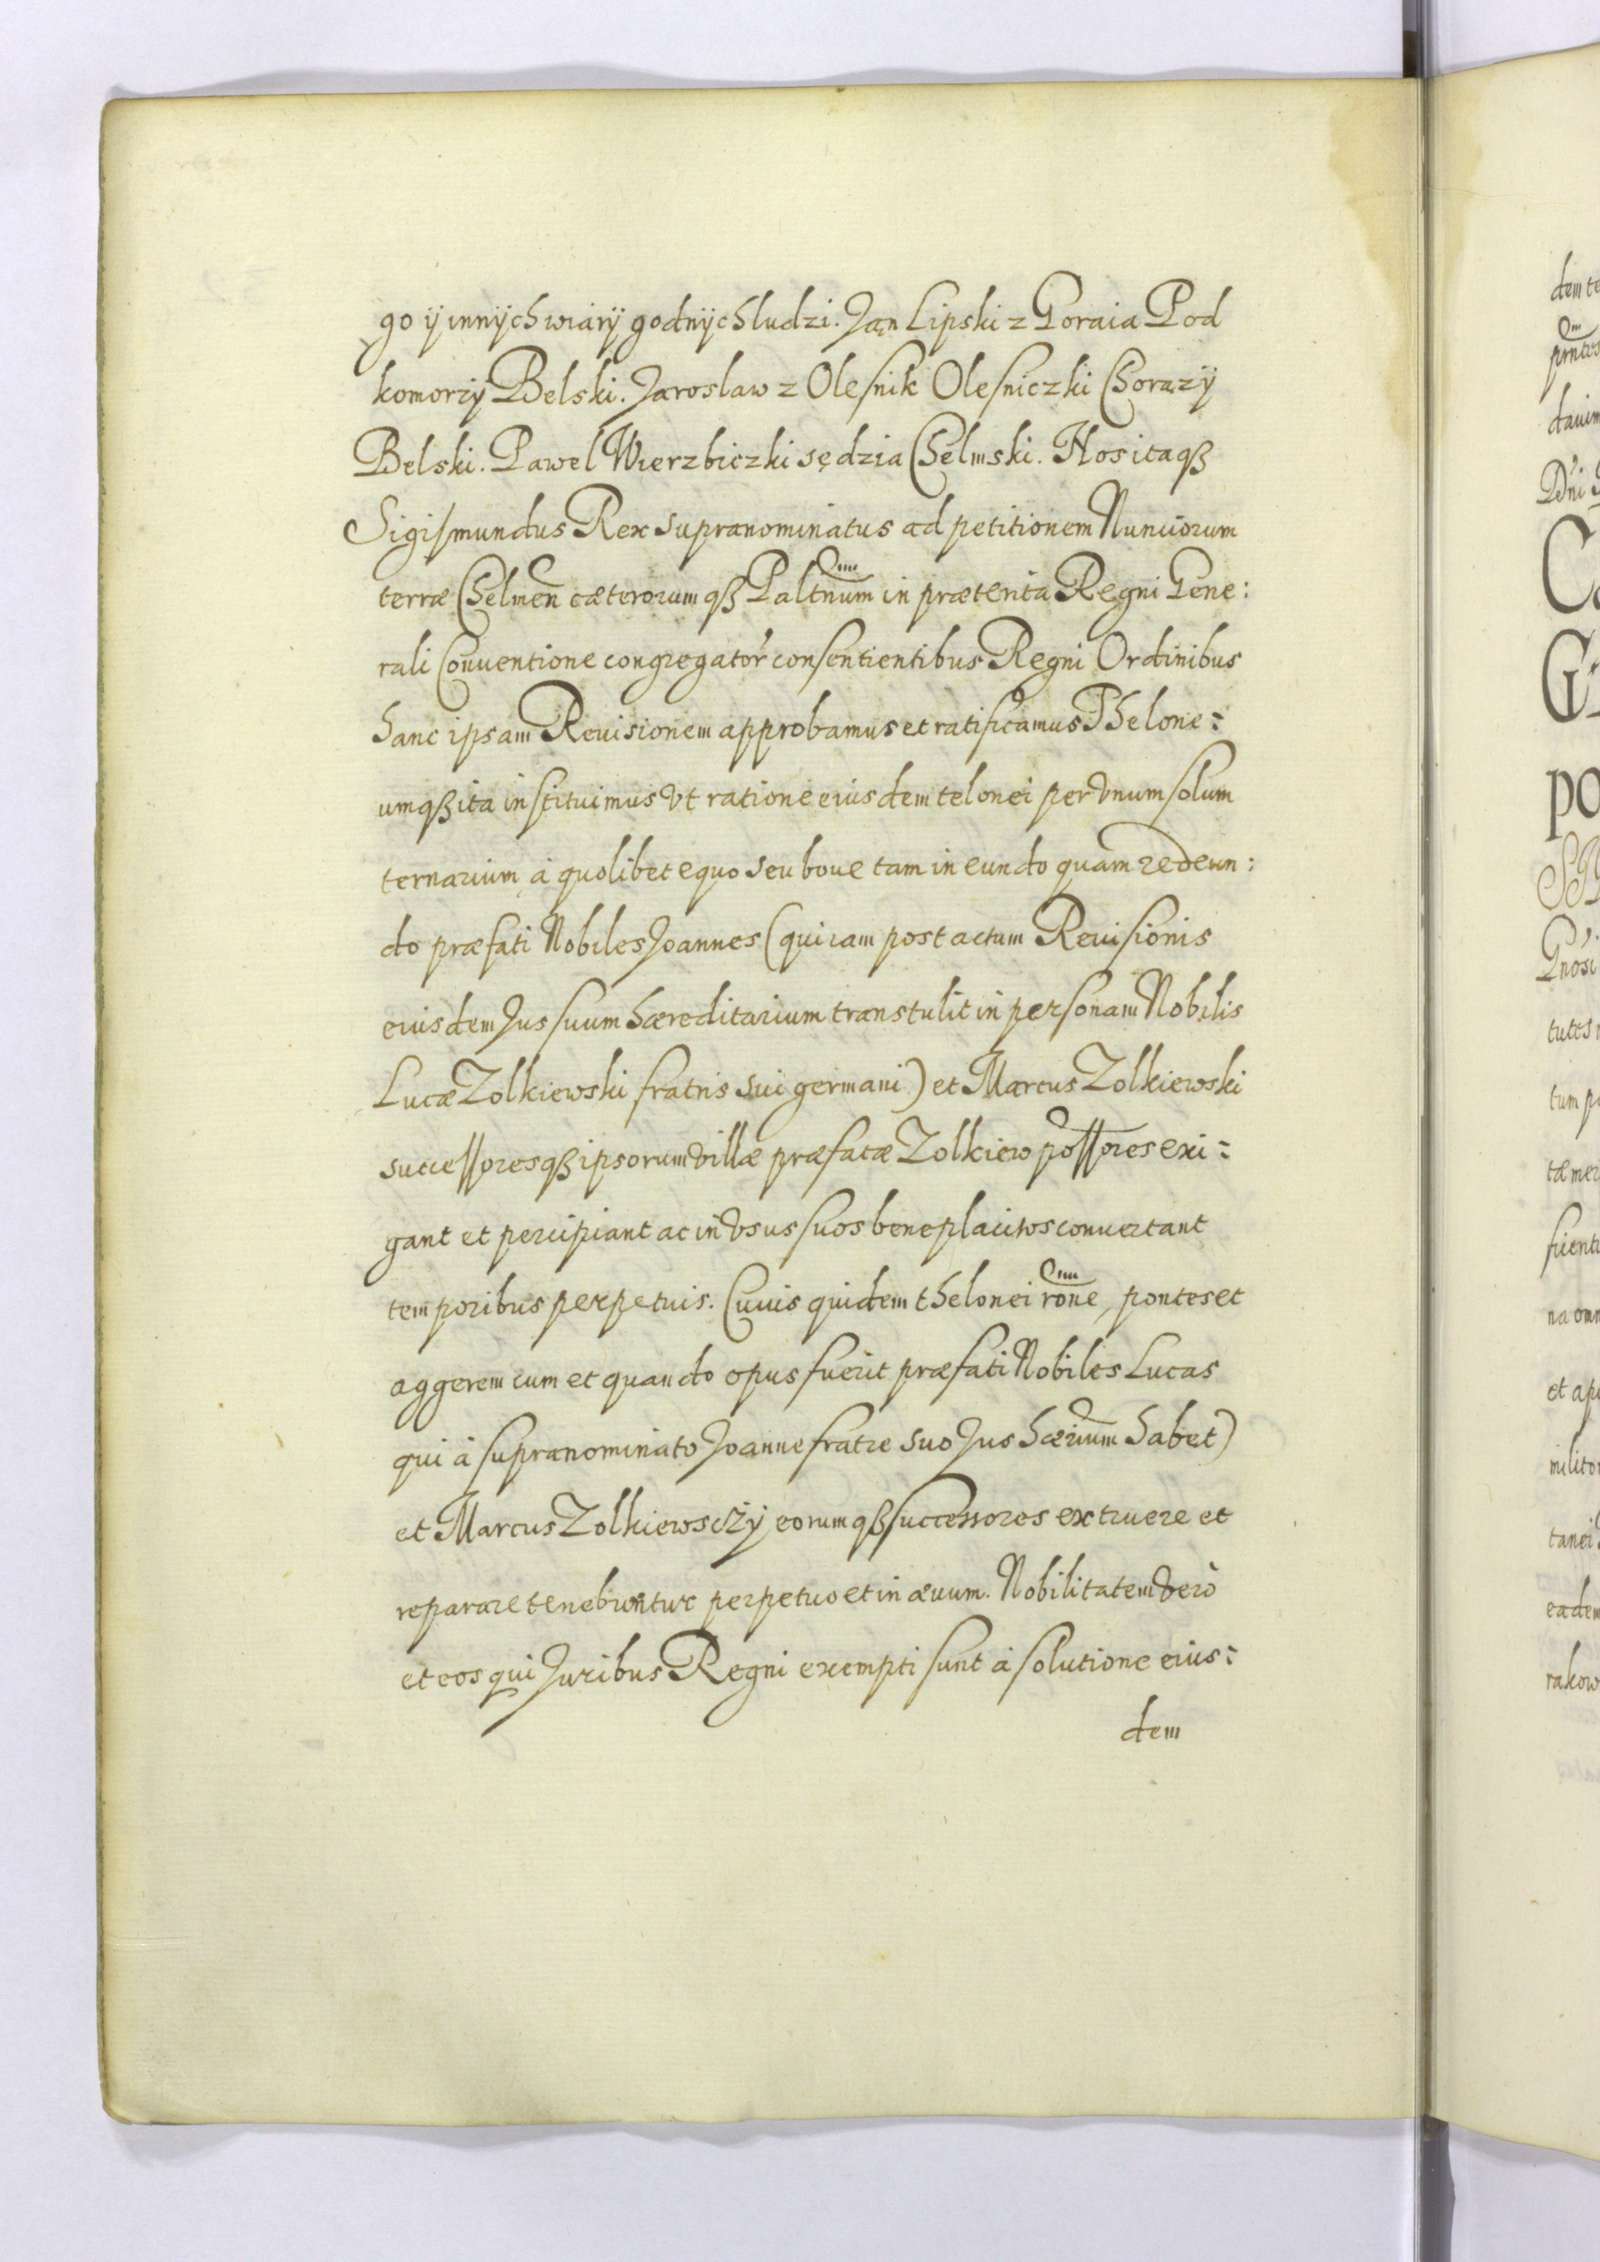 go ÿ innÿch wiarÿ godnÿch ludzi. Jan Lipski z Goraia Pod
komorzÿ Belski. Jaroslaw z Olesnik Olesniczki Chorązÿ
Belski. Pawel Wierzbiczki sędzia Chelmski. Hos itaqꝫ
Sigismundus Rex supranominatus ad petitionem Nunciorum
terræ Chelmen̄ cæterorumqꝫ Paltn̄um in præterita Regni Gene:
rali Conuentione congregator̄ consentientibus Regni Ordinibus
hanc ipsam Reuisionem approbamus et ratificamus Thelone:
umqꝫ ita instituimus vt ratione eiusdem telonei per vnum solum
ternarium à quolibet equo seu boue tam in eundo quam redeun:
do præfati Nobiles Joannes (qui iam post actum Reuisionis
eiusdem Jus suum hæreditarium transtulit in personam Nobilis
Lucæ Zolkiewski fratris sui germani) et Marcus Zolkiewski
successoresqꝫ ipsorum villæ præfatæ Zolkiew possores exi:
gant et percipiant ac in vsus suos beneplacitos conuertant
temporibus perpetuis. Cuius quidem thelonei rōne, pontes et
aggerem cum et quando opus fuerit præfati Nobiles Lucas
qui à supranominato Joanne fratre suo Jus hærium habet)
et Marcus Zolkiewsczÿ eorumqꝫ successores extruere et
reparare tenebuntur perpetuo et in æuum. Nobilitatem verò
et eos qui Juribus Regni exempti sunt à solutione eius:
dem